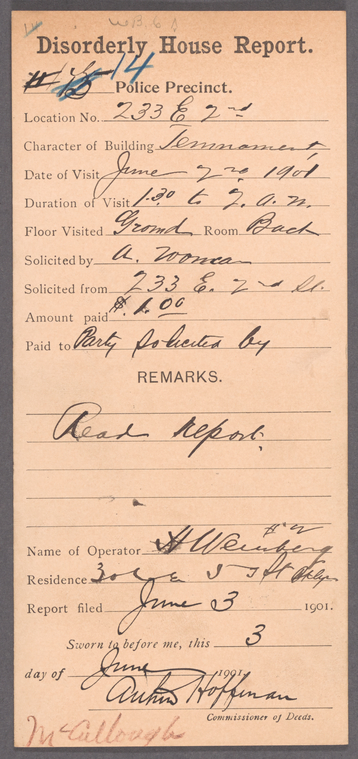 14
Disorderly House Report.
14 Police Precinct.
Location No. 233 E 2nd
Character of Building Tennament,
Date of Visit June 2nd 1901
Duration of Visit 1.30 to 2. a. m.
Floor Visited Ground Room Back
Solicited by A. Woman
Solicited from 233 E. 2nd St.
Amount paid $1.00
Paid to Party Solicited by
REMARKS.
Read Report.
Name of Operator H Weinberg
Residence E St Bklyn
Report filed June 3 1901.
Sworn to before me, this 3
day of June 1901
Arthur Hoffman
Commissioner of Deeds.
McCullough